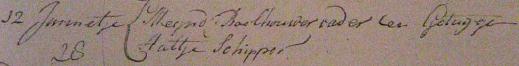 12 Jannetje { Meyno Boelhouwer vader en Getuyge
28 Aaltje Schipper